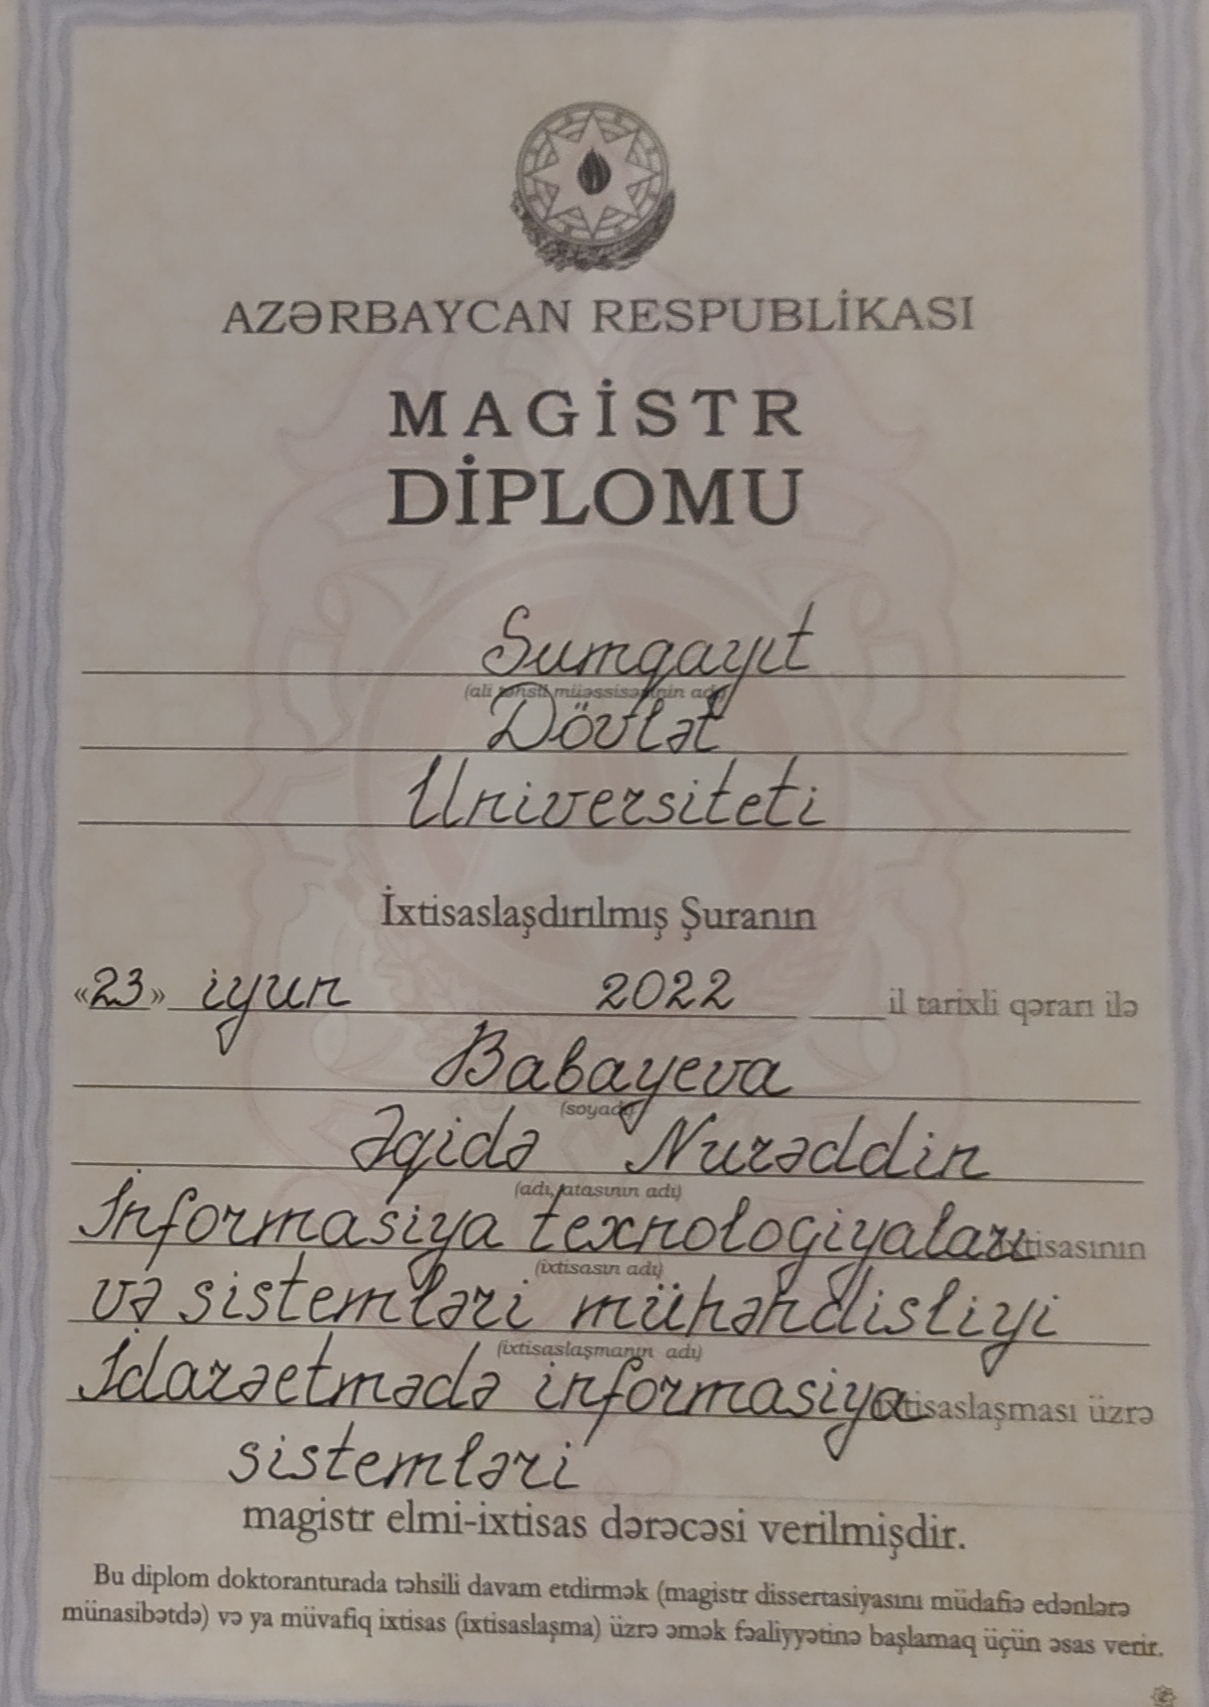 AZƏRBAYCAN RESPUBLİKASI
MAGİSTR
DİPLOMU
Sumqayıt
(ali təhsil müəssisəsinin adı)
Dövlət
Universiteti
İxtisaslaşdırılmış Şuranın
«23» iyun 2022 il tarixli qərarı ilə
Babayeva
(soyadı)
Əqidə Nurəddin
(adı, atasının adı)
İnformasiya texnologiyaları ixtisasının
(ixtisasın adı)
və sistemləri mühəndisliyi
(ixtisaslaşmanın adı)
İdarəetmədə informasiya ixtisaslaşması üzrə
sistemləri
magistr elmi-ixtisas dərəcəsi verilmişdir.
Bu diplom doktoranturada təhsili davam etdirmək (magistr dissertasiyasını müdafiə edənlərə
münasibətdə) və ya müvafiq ixtisas (ixtisaslaşma) üzrə əmək fəaliyyətinə başlamaq üçün əsas verir.